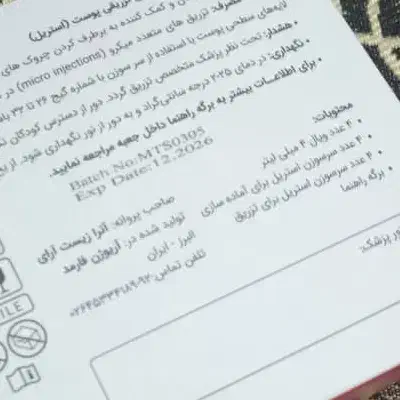 تزریقی پوست (استریل)
مصرف: تزریق های متعدد میکرو (micro injections) در
لایه‌های سطحی پوست با استفاده از سر سوزن با شماره گیج
ن و کمک کننده به برطرف کردن چروک های
• هشدار: تحت نظر پزشک متخصص تزریق گردد. دور از دسترس کودکان
• نگهداری: در دمای ۲-۲۵ درجه سانتی‌گراد و به دور از نور نگهداری شود. از
• برای اطلاعات بیشتر به برگه راهنما داخل جعبه مراجعه نمایید.
Batch No:MTS0305
Exp Date:12.2026
محتویات:
• ۴ عدد ویال ۴ میلی لیتر
• ۴ عدد سرسوزن استریل برای آماده سازی
• ۴ عدد سرسوزن استریل برای تزریق
• برگه راهنما
صاحب پروانه: آترا زیست آرای
تولید شده در: آریوژن فارمد
البرز - ایران
تلفن تماس:
ور پزشک:
ILE